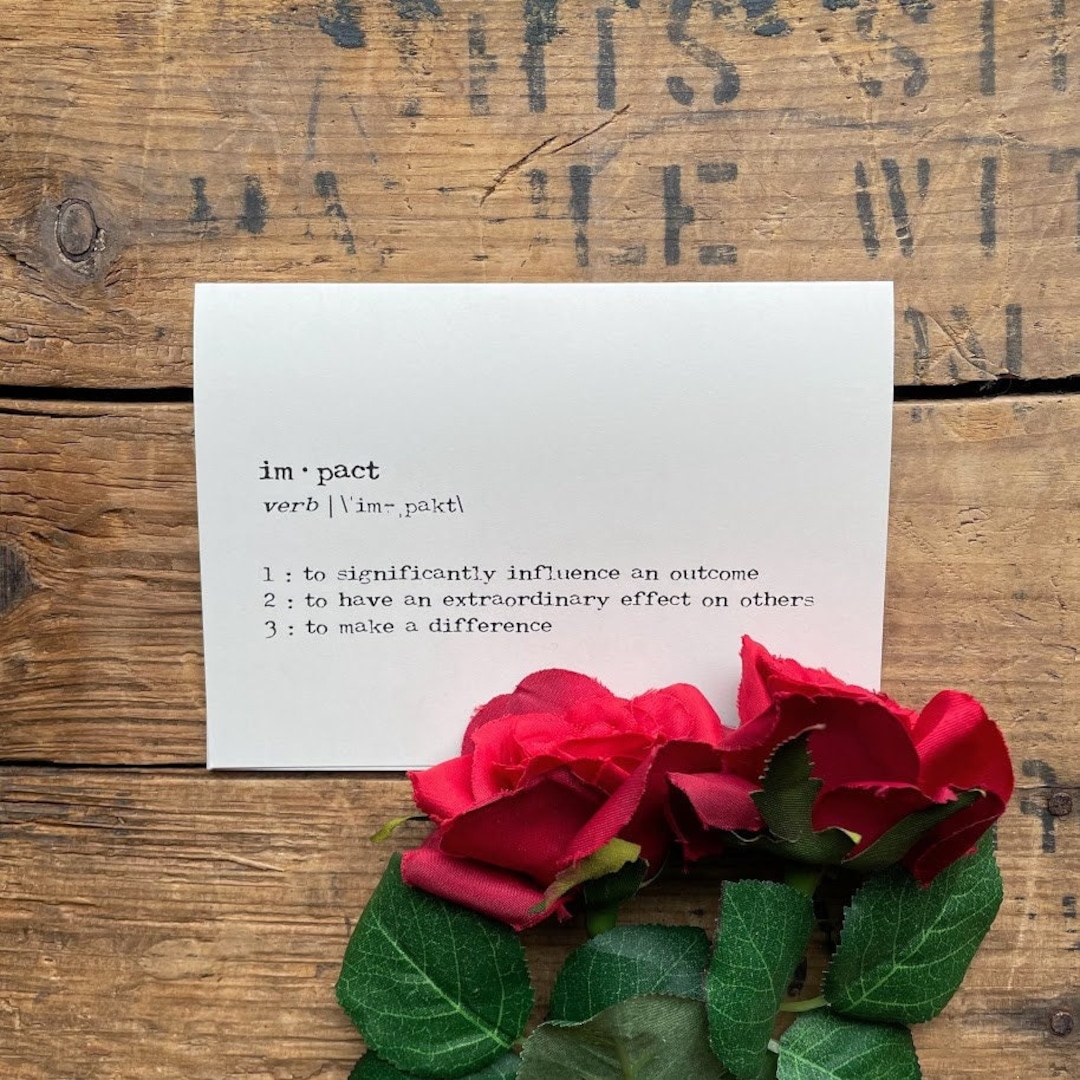 im · pact
verb | \ˈim-ˌpakt\
1 : to significantly influence an outcome
2 : to have an extraordinary effect on others
3 : to make a difference